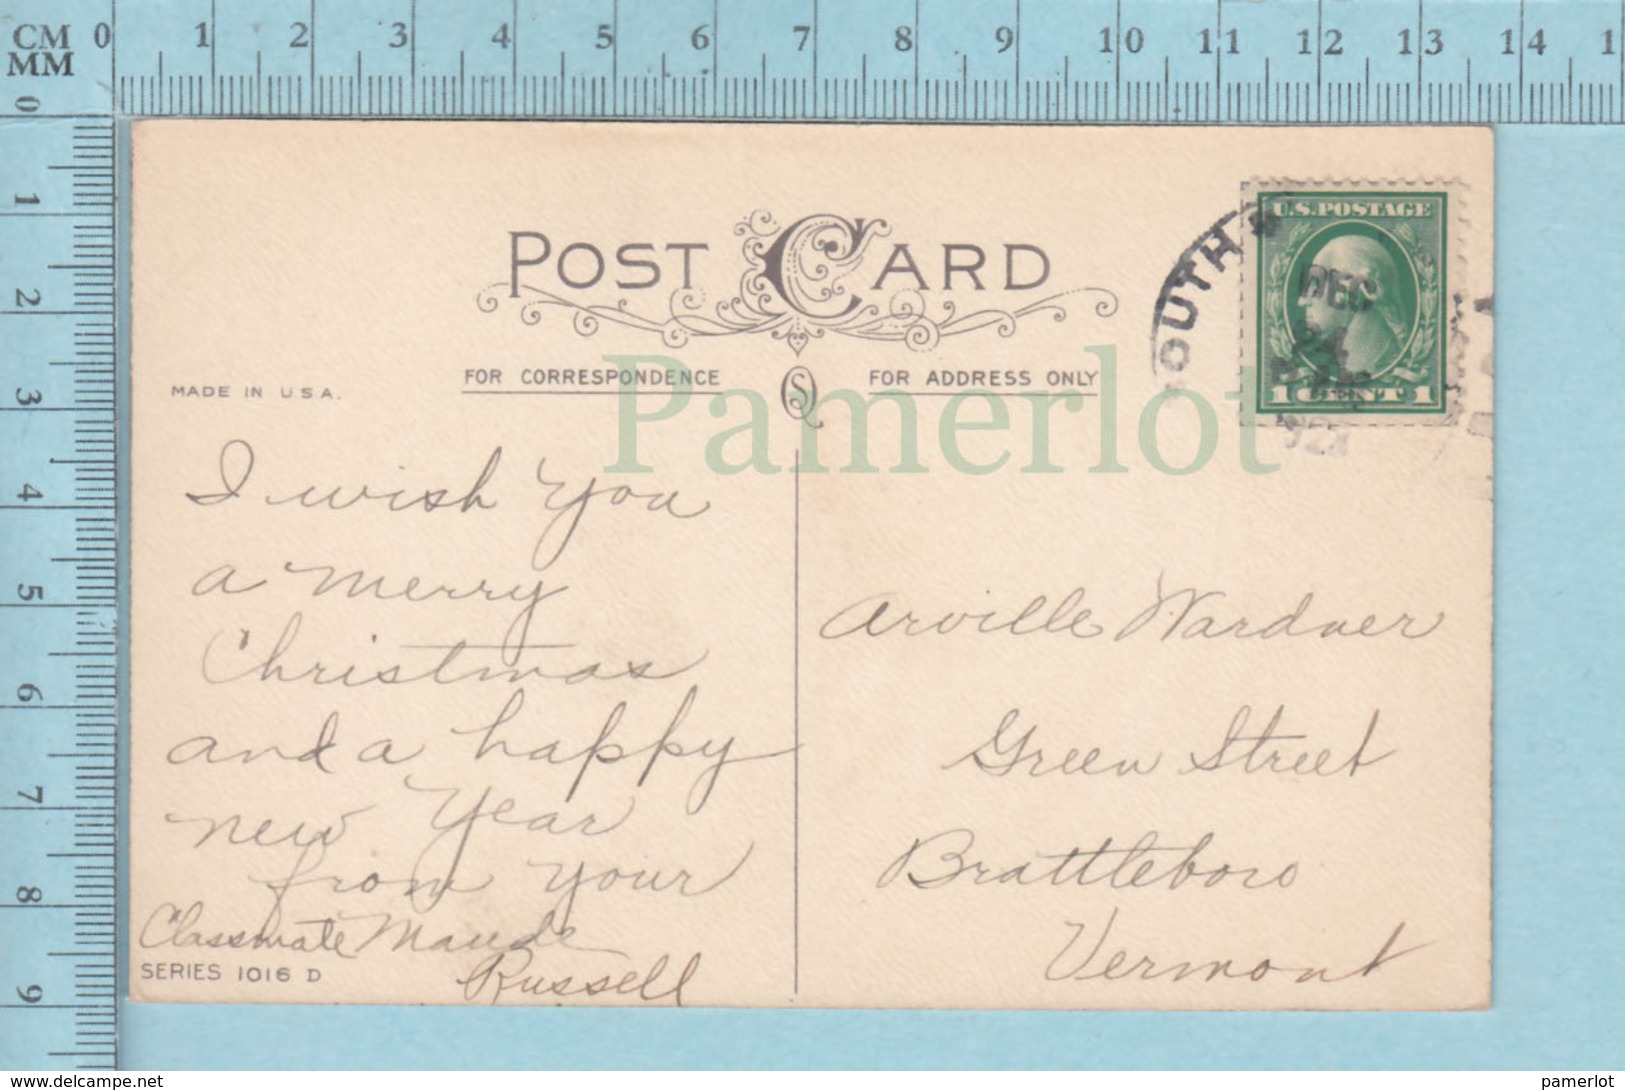 CM 0 1 2 3 4 5 6 7 8 9 10 11 12 13 14 1
MM
0 1 2 3 4 5 6 7 8 9
POST CARD
MADE IN U.S.A.
FOR CORRESPONDENCE
S
FOR ADDRESS ONLY
SOUTH
U.S.POSTAGE
DEC
24
1 CENT 1
Pamerlot
I wish you
a merry
Christmas
and a happy
new year
from your
Classmate Maude
Russell
SERIES 1016 D
Arville Wardner
Green Street
Brattleboro
Vermont
www.delcampe.net
pamerlot